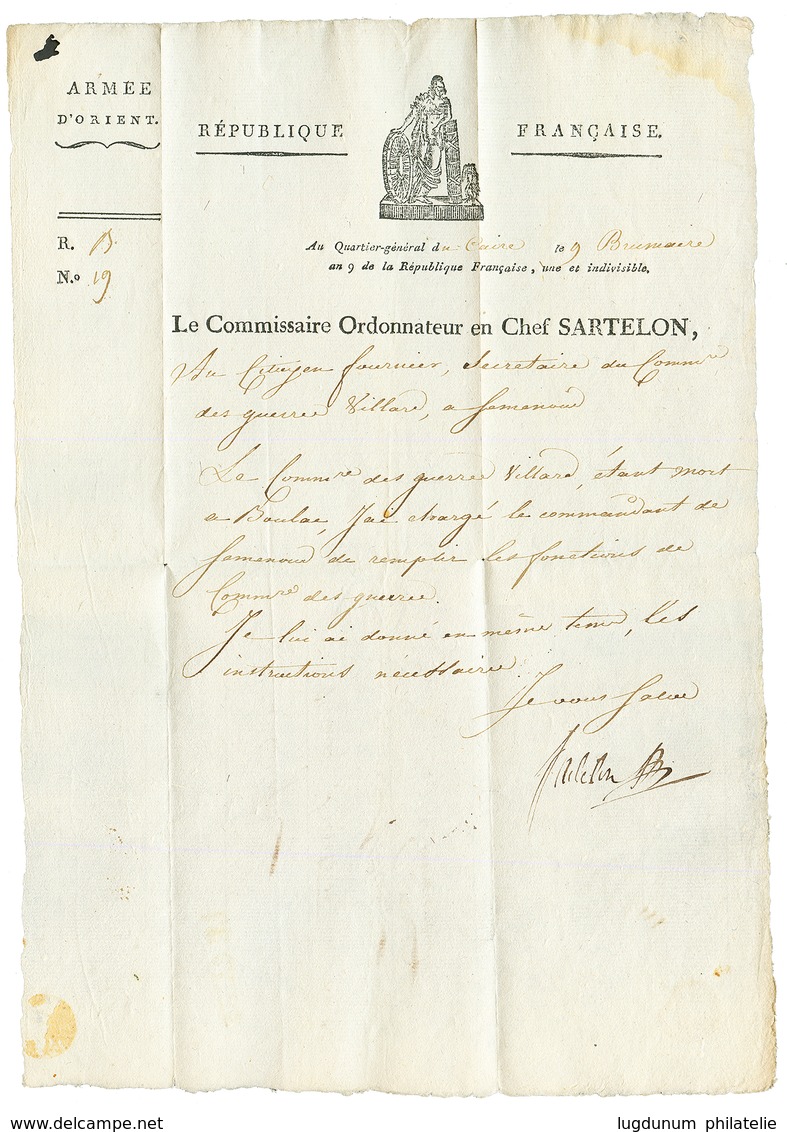 ARMÉE
D'ORIENT.
RÉPUBLIQUE FRANÇAISE.
R. B.
N.o 19
Au Quartier-général du Caire le 9 Brumaire
an 9 de la République Française, une et indivisible.
Le Commissaire Ordonnateur en Chef SARTELON,
Au Citoyen fournier, Secretaire du Commre
des guerres Villard, a Semenoud
Le Commre des guerres Villard, étant mort
a Boulac, J'ai chargé le commandant de
Semenoud de remplir les fonctions de
Commre des guerres.
Je lui ai donné en même tems, les
instructions nécessaires.
Je vous Salue
Sartelon
delcampe.net
lugdunum philatelie